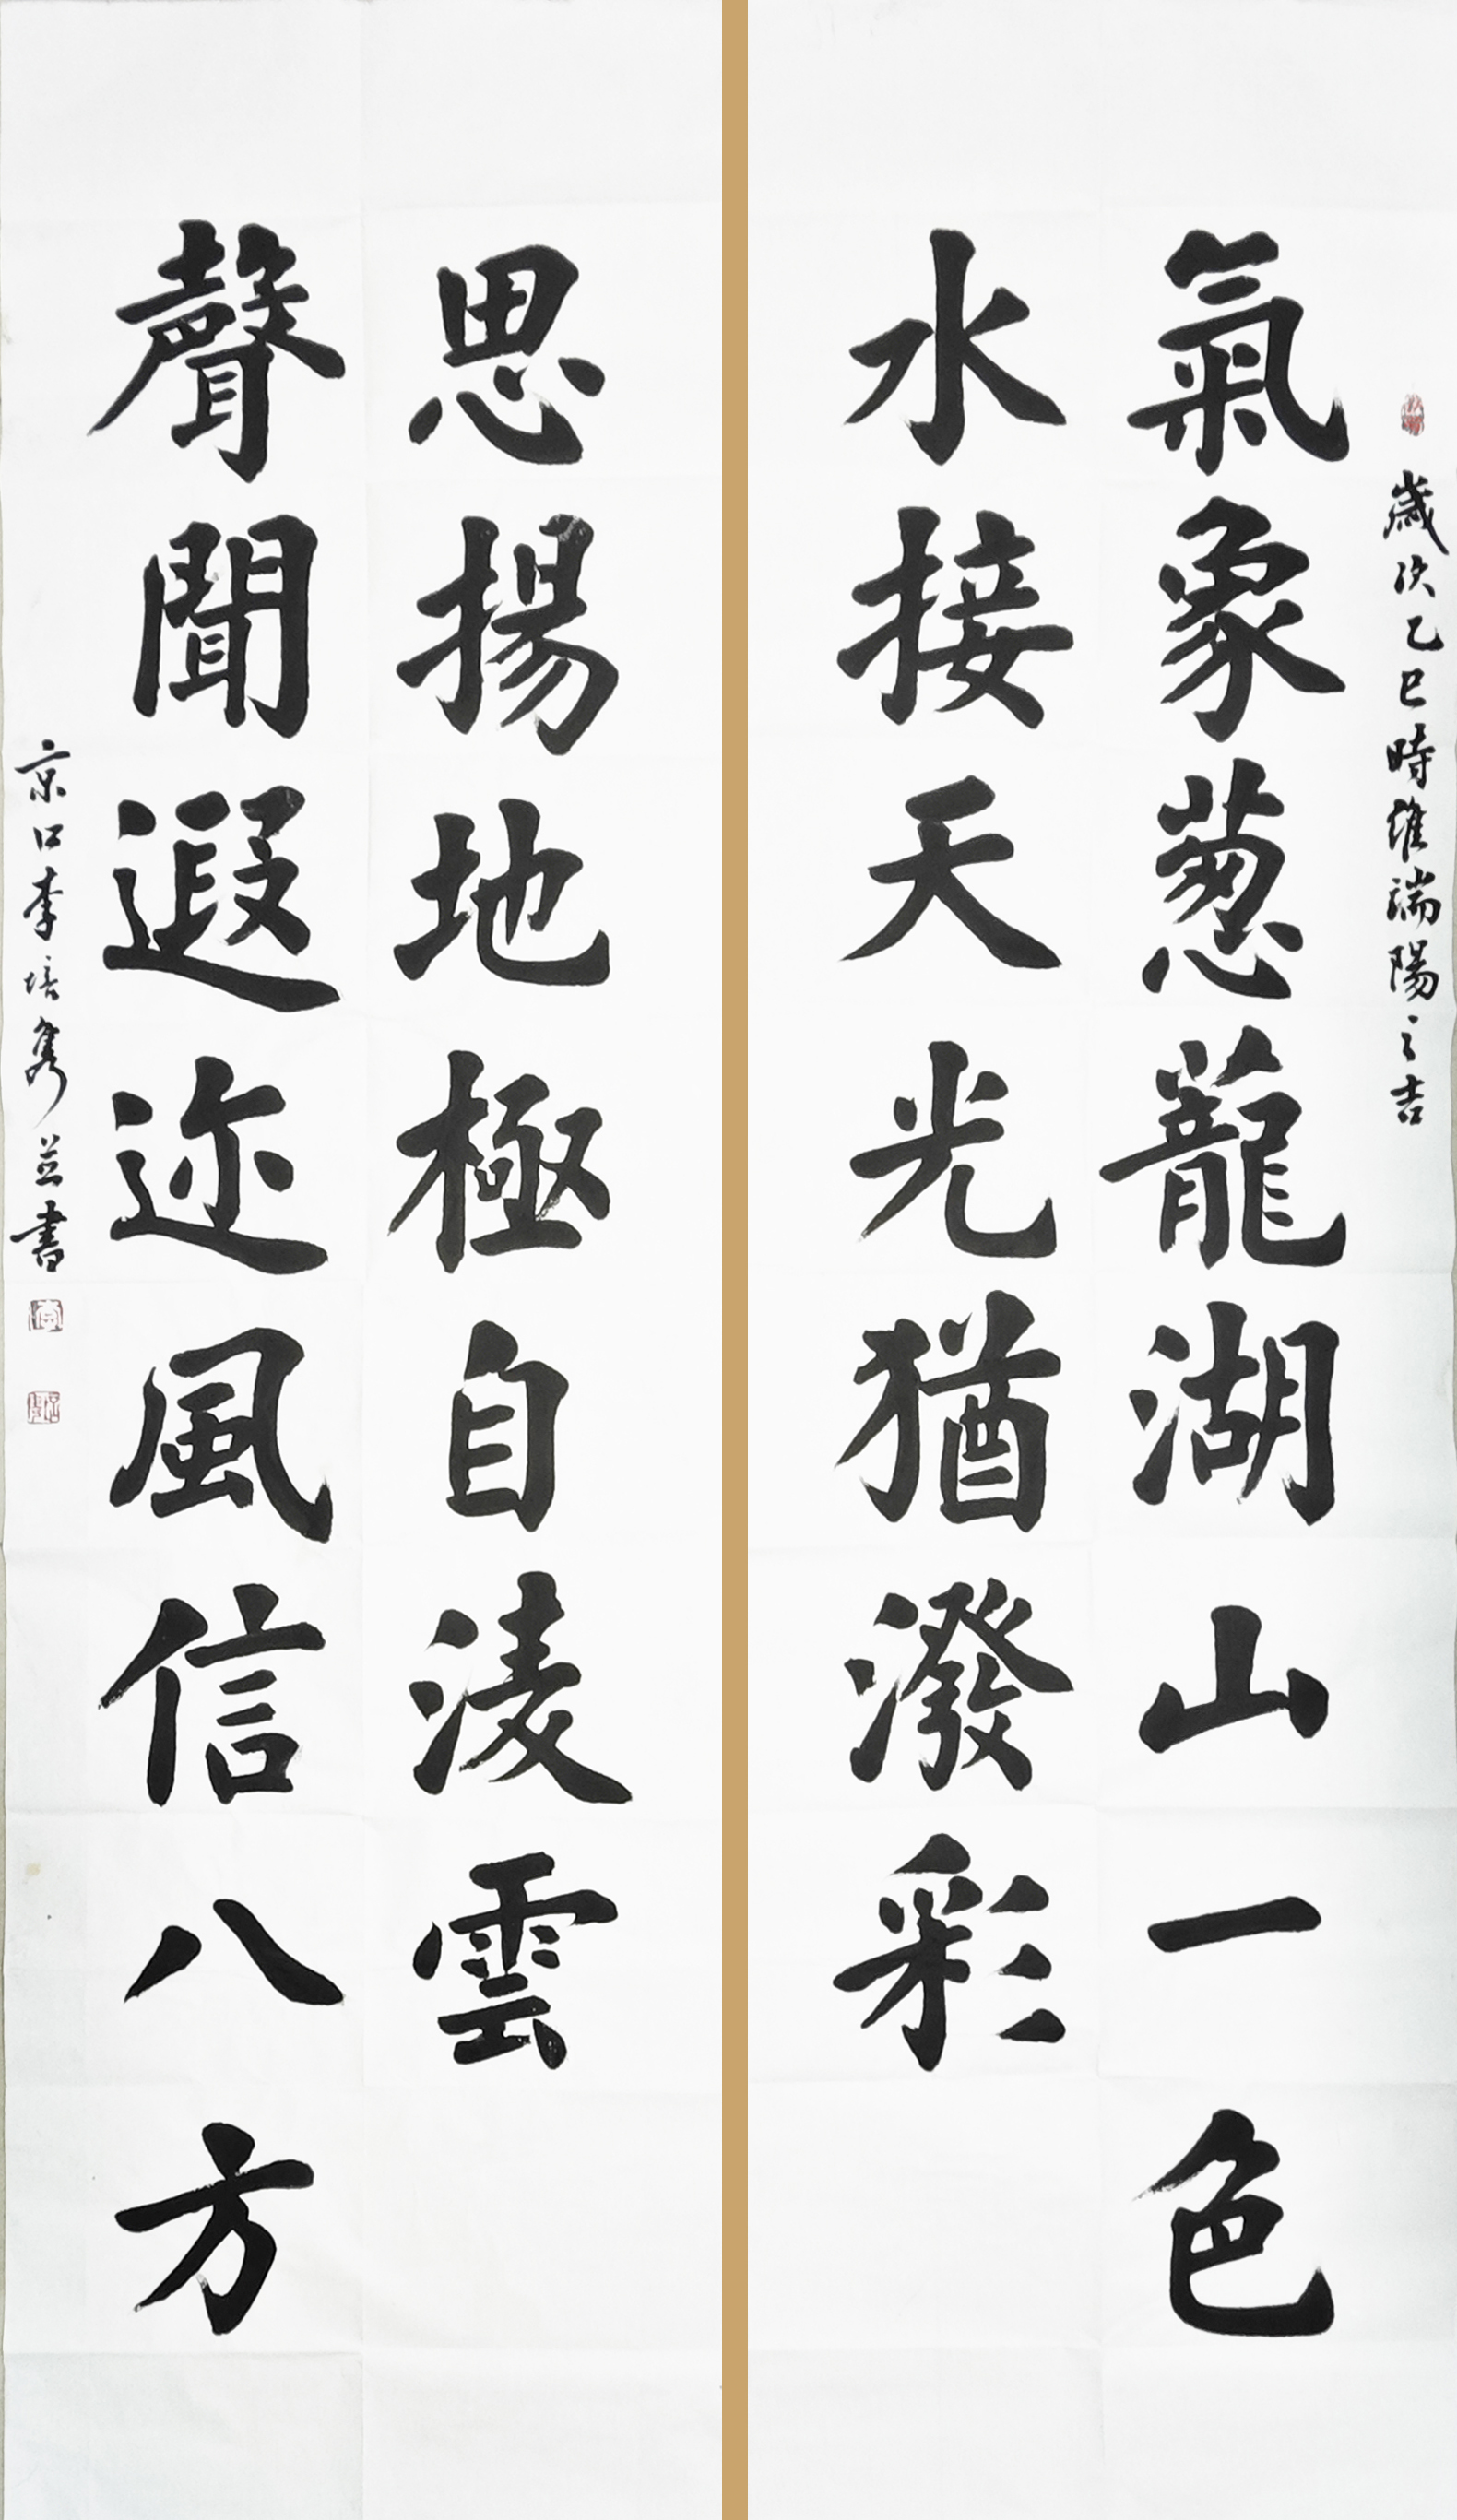 歲次乙巳時維端陽之吉
氣象葱蘢湖山一色
水接天光猶潑彩
聲聞遐迩風信八方
思揚地極自淩雲
京口李培隽並書